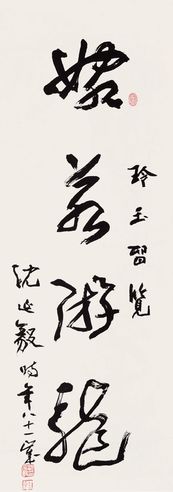 矯若游龍
玲玉留覽
沈延毅時年八十一歲